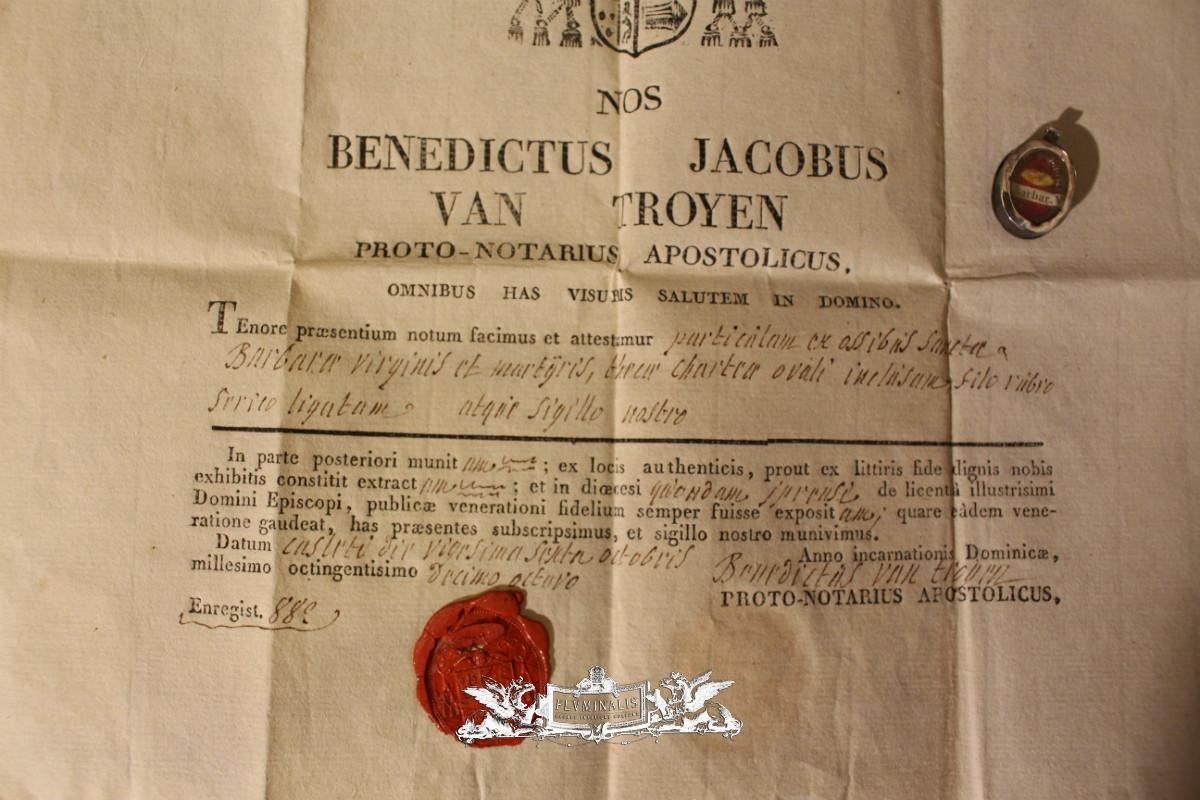 NOS
BENEDICTUS JACOBUS
VAN TROYEN
PROTO-NOTARIUS APOSTOLICUS.
OMNIBUS HAS VISURIS SALUTEM IN DOMINO.
TEnore præsentium notum facimus et attestamur particulam ex ossibus Sanctæ
Barbaræ virginis et martÿris, thecæ chartæ ovali inclusam filo rubro
serico ligatam atque sigillo nostro
In parte posteriori munitam ; ex locis authenticis, prout ex littiris fide dignis nobis
exhibitis constitit extractam ; et in diœcesi quondam iprensi de licentâ illustrisimi
Domini Episcopi, publicæ venerationi fidelium semper fuisse expositam; quare eâdem vene-
ratione gaudeat, has præsentes subscripsimus, et sigillo nostro munivimus.
Datum casleti die vigesima sexta octobris Anno incarnationis Dominicæ,
millesimo octingentisimo decimo octavo Benedictus van troyen
PROTO-NOTARIUS APOSTOLICUS,
Enregist.
arbar. V
FLVMINALIS